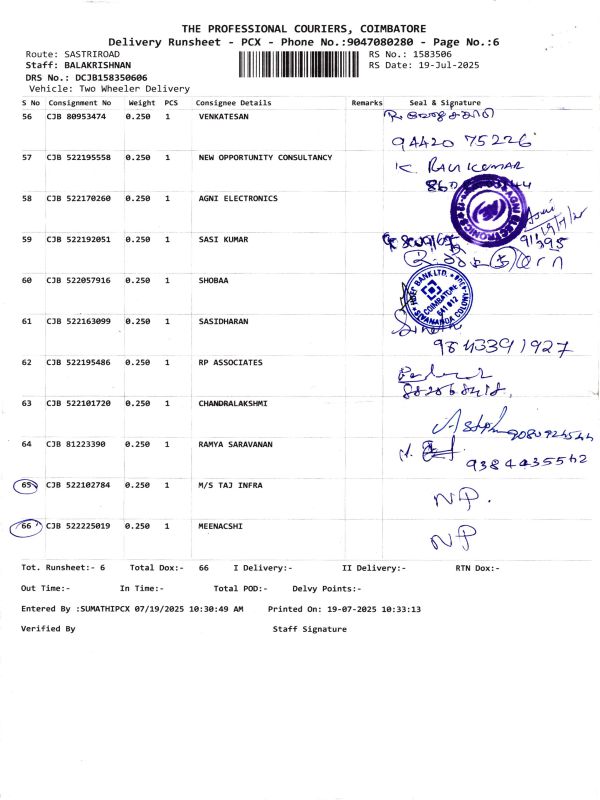 THE PROFESSIONAL COURIERS, COIMBATORE
Delivery Runsheet - PCX - Phone No.:9047080280 - Page No.:6
Route: SASTRIROAD RS No.: 1583506
Staff: BALAKRISHNAN RS Date: 19-Jul-2025
DRS No.: DCJB158350606
Vehicle: Two Wheeler Delivery
S No Consignment No Weight PCS Consignee Details Remarks Seal & Signature
56 CJB 80953474 0.250 1 VENKATESAN
94420 75226
57 CJB 522195558 0.250 1 NEW OPPORTUNITY CONSULTANCY K. RAVI KUMAR
58 CJB 522170260 0.250 1 AGNI ELECTRONICS
AGNI ELECTRONICS
59 CJB 522192051 0.250 1 SASI KUMAR
60 CJB 522057916 0.250 1 SHOBAA
HDFC BANK LTD.
COIMBATORE
641 012
SIVANANDA COLONY
61 CJB 522163099 0.250 1 SASIDHARAN
9843391927
62 CJB 522195486 0.250 1 RP ASSOCIATES
63 CJB 522101720 0.250 1 CHANDRALAKSHMI
64 CJB 81223390 0.250 1 RAMYA SARAVANAN
9384435542
65 CJB 522102784 0.250 1 M/S TAJ INFRA NP.
66 CJB 522225019 0.250 1 MEENACSHI NP
Tot. Runsheet:- 6 Total Dox:- 66 I Delivery:- II Delivery:- RTN Dox:-
Out Time:- In Time:- Total POD:- Delvy Points:-
Entered By :SUMATHIPCX 07/19/2025 10:30:49 AM Printed On: 19-07-2025 10:33:13
Verified By Staff Signature